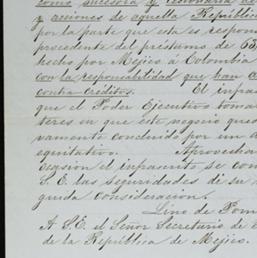 como sucesora y
y acciones de aquella República
por la parte que esta es respon
procedente del préstamo de 63,
hecho por Mejico a Colombia
con la responsabilidad que han
contra créditos. El infras
que el Poder Ejecutivo toma
teres en que este negocio qued
vamente concluido por un a
equitativo. Aprovecha
el infrascrito se com
S. E. las seguridades de su
guida consideracion.
Lino de Pom
A S.E. el Señor Secretario de
de la República de Mejico.